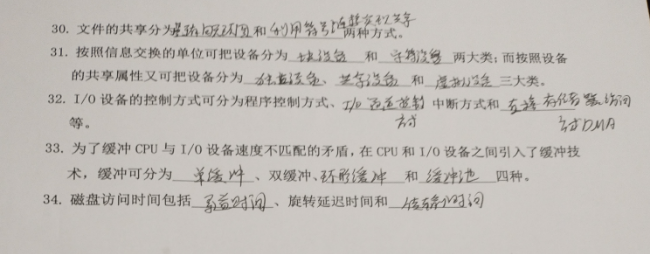 30. 文件的共享分为基于索引结点和利用符号链实现共享两种方式。
31. 按照信息交换的单位可把设备分为 块设备 和 字符设备 两大类；而按照设备
的共享属性又可把设备分为 独占设备、共享设备 和 虚拟设备 三大类。
32. I/O 设备的控制方式可分为程序控制方式、I/O 通道控制方式 中断方式和 直接存储器访问方式DMA
等。
33. 为了缓冲 CPU 与 I/O 设备速度不匹配的矛盾，在 CPU 和 I/O 设备之间引入了缓冲技
术，缓冲可分为 单缓冲 、双缓冲、环形缓冲 和 缓冲池 四种。
34. 磁盘访问时间包括 寻道时间 、旋转延迟时间和 传输时间